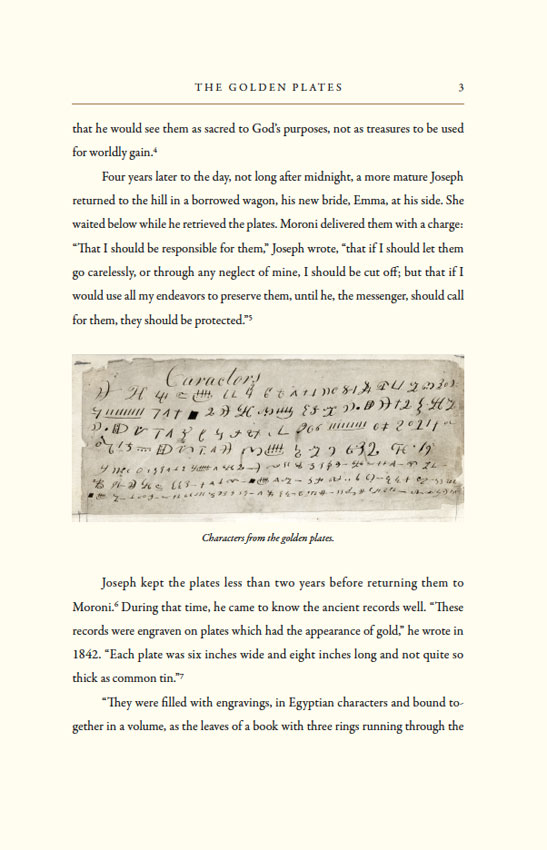 THE GOLDEN PLATES 3
that he would see them as sacred to God's purposes, not as treasures to be used
for worldly gain.⁴
Four years later to the day, not long after midnight, a more mature Joseph
returned to the hill in a borrowed wagon, his new bride, Emma, at his side. She
waited below while he retrieved the plates. Moroni delivered them with a charge:
“That I should be responsible for them,” Joseph wrote, “that if I should let them
go carelessly, or through any neglect of mine, I should be cut off; but that if I
would use all my endeavors to preserve them, until he, the messenger, should call
for them, they should be protected.”⁵
Caractors
Characters from the golden plates.
Joseph kept the plates less than two years before returning them to
Moroni.⁶ During that time, he came to know the ancient records well. “These
records were engraven on plates which had the appearance of gold,” he wrote in
1842. “Each plate was six inches wide and eight inches long and not quite so
thick as common tin.”⁷
“They were filled with engravings, in Egyptian characters and bound to-
gether in a volume, as the leaves of a book with three rings running through the